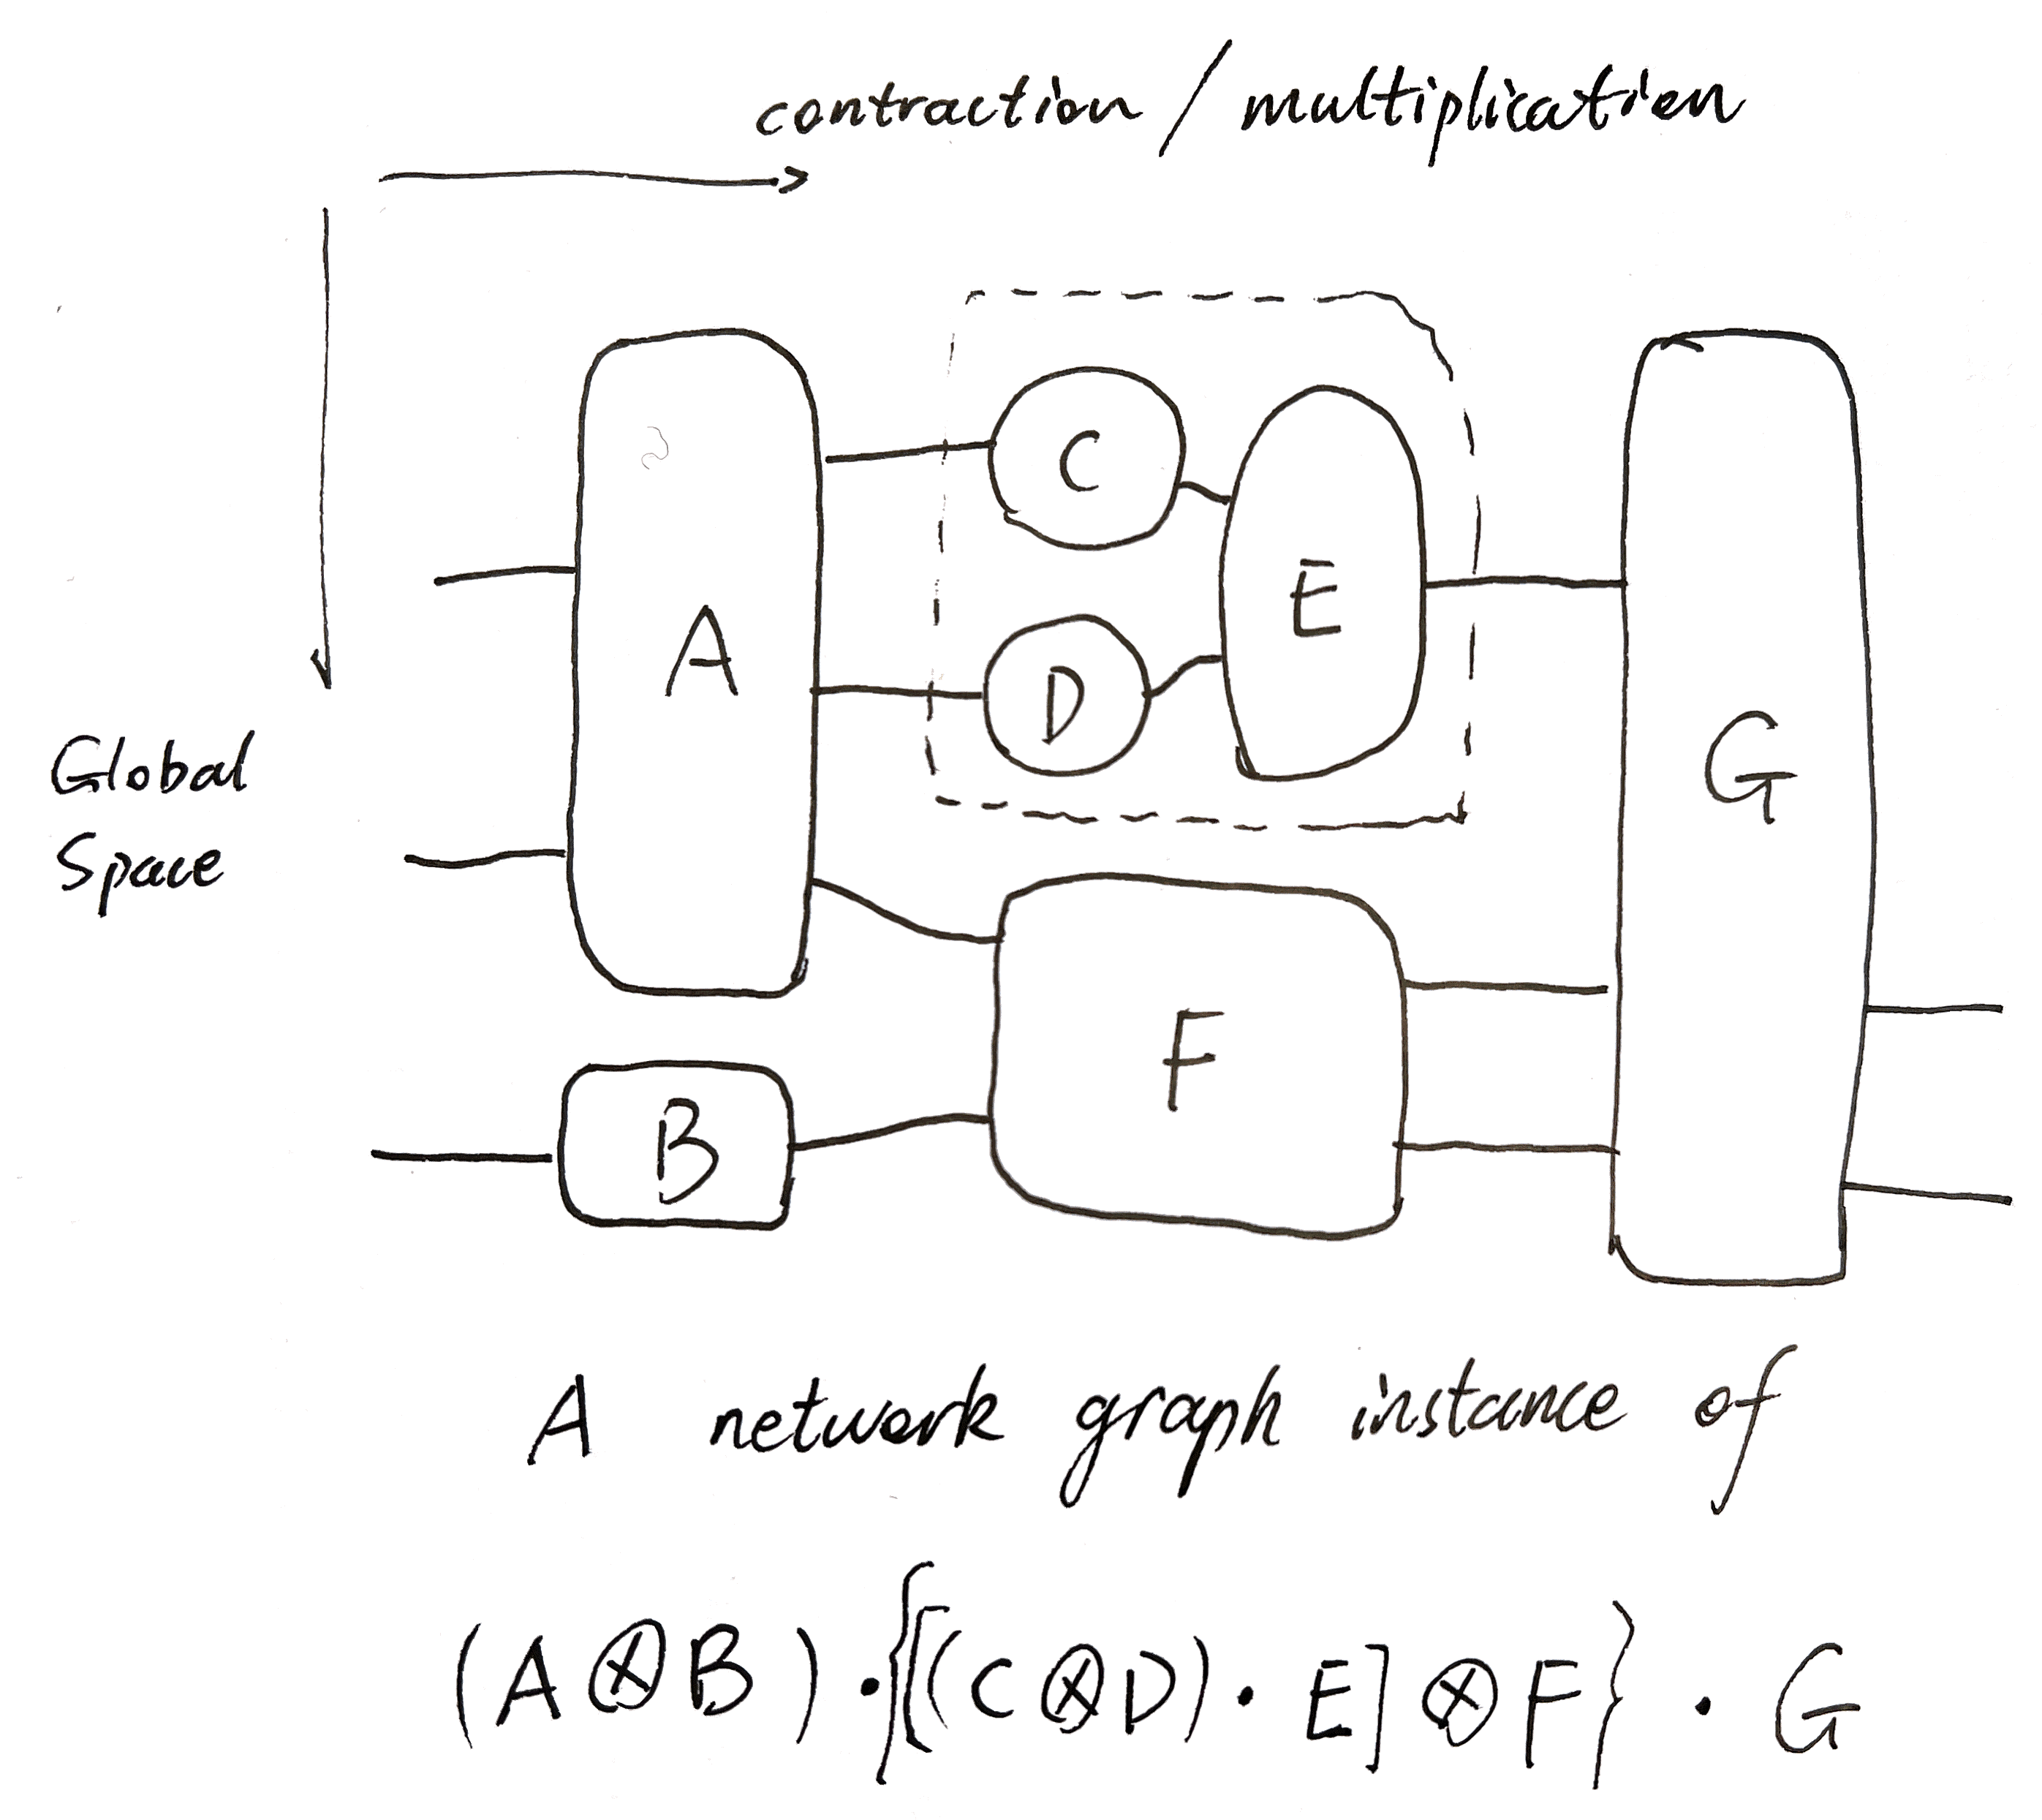 contraction / multiplication
C
E
A
D
G
Global
Space
F
B
A network graph instance of
(A⊗B)·{[(C⊗D)·E]⊗F}·G